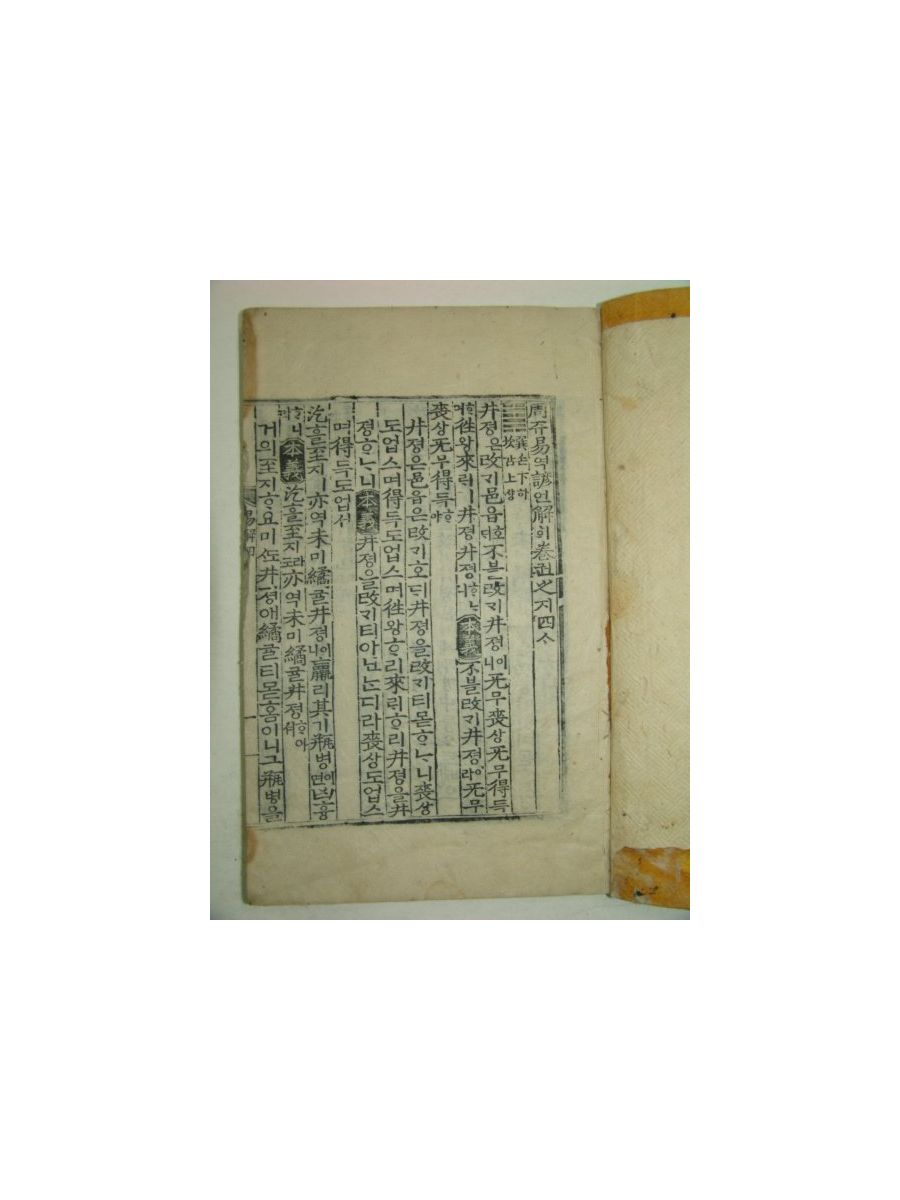 周쥬易역諺언解ᄒᆡ卷권之지四ᄉᆞ
巽손下하 坎감上샹
井졍은改ᄀᆡ邑읍호ᄃᆡ不블改ᄀᆡ井졍이니无무喪상无무得득
ᄒᆞ며徃왕來ᄅᆡ井졍井졍ᄒᆞᄂᆞ니 本義 不블改ᄀᆡ井졍이라无무
喪상无무得득ᄒᆞ야
井졍은邑읍은改ᄀᆡ호ᄃᆡ井졍을改ᄀᆡ티몯ᄒᆞᄂᆞ니喪상
도업스며得득도업스며徃왕ᄒᆞ리來ᄅᆡᄒᆞ리井졍을井
졍ᄒᆞᄂᆞ니 本義 井졍을改ᄀᆡ티아닌ᄂᆞᆫ디라喪상도업스
며得득도업서
汔흘至지亦역未미繘귤井졍이니羸리其기甁병이면凶흉
ᄒᆞ니라 本義 汔흘至지도라亦역未미繘귤井졍ᄒᆞ야셔
거의至지ᄒᆞ요미ᄯᅩ井졍애繘귤티몯홈이니그甁병을
易解四